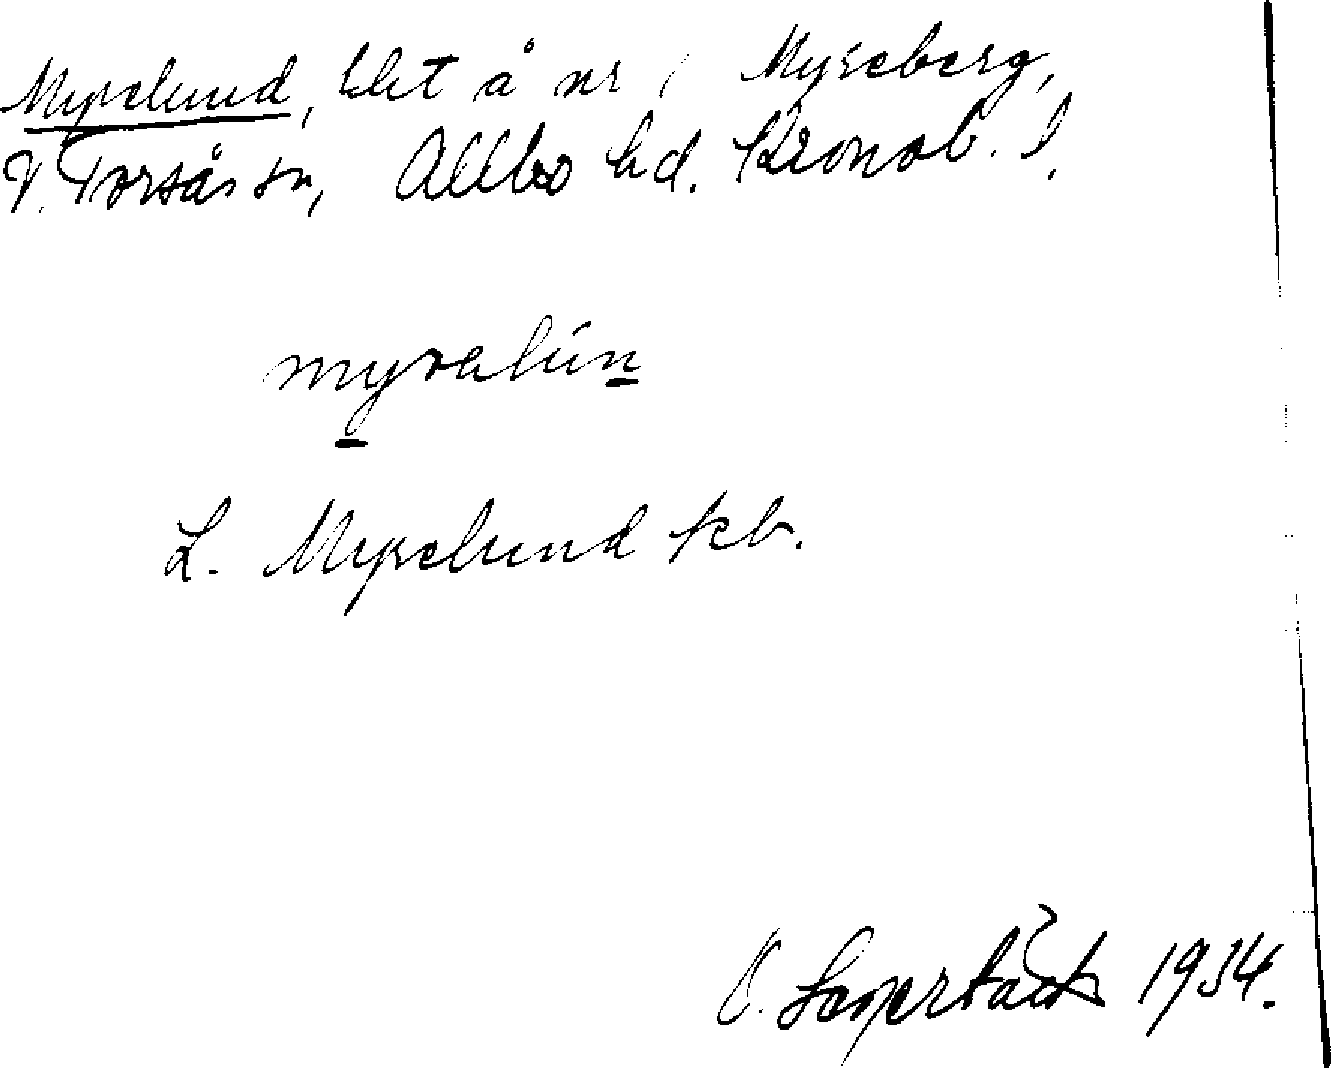 Myrelund, lht å nr 1 Myreberg,
V. Torsås sn, Allbo hd. Kronob. l.
myralún
L. Myrelund kb.
1934.